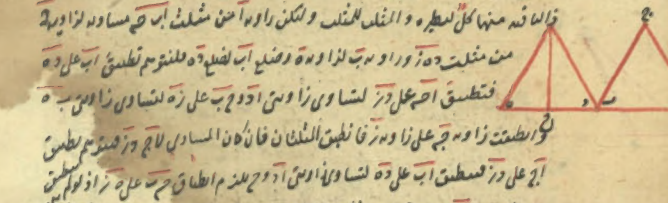 والباقيه منها كل لنظيره والمثلث للمثلث ولتكن زاويه ا من مثلث اب ج مساويه لزاويه د
من مثلث ده ز وزاويه ب لزاويه ه وضلع اب لضلع ده فلنتوهم تطبيق اب على ده
فتطبيق اج على دز لتساوى زاويتى ا د وج ب على زه لتساوى زاويتى ب ه
وانطبقت زاويه ج على زاويه ز فانطبق المثلثان فان كان المساوى لاج دز فنتوهم تطبيق
اج على دز فينطبق اب على ده لتساوى زاويتى ا د و يلزم انطباق ج ب على ه ز اذ لو لم ينطبق